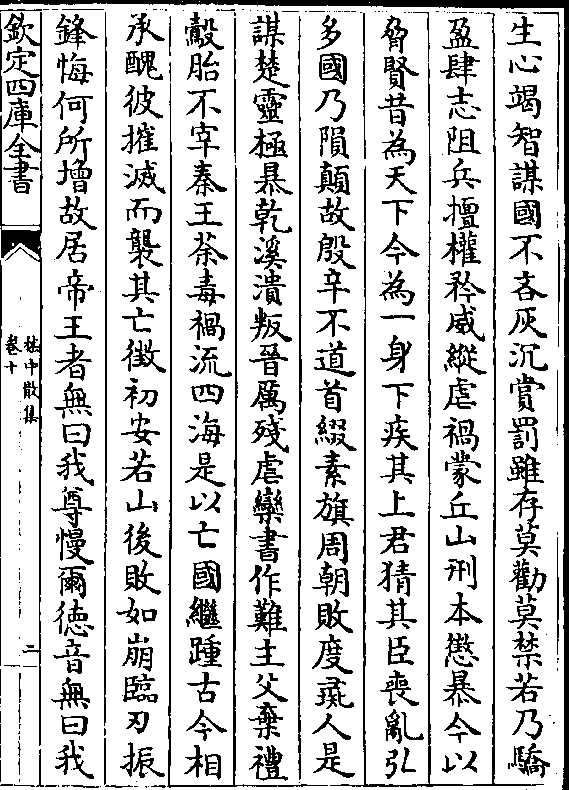 生心竭智謀國不吝灰沉賞罰雖存莫勸莫禁若乃驕
盈肆志阻兵擅權矜威縱虐禍蒙丘山刑本懲暴今以
脅賢昔為天下今為一身下疾其上君猜其臣喪亂弘
多國乃隕顛故殷辛不道首綴素旗周朝敗度彘人是
謀楚靈極暴乾溪潰叛晉厲殘虐欒書作難主父棄禮
鷇胎不宰秦王荼毒禍流四海是以亡國繼踵古今相
承醜彼摧滅而襲其亡徵初安若山後敗如崩臨刃振
鋒悔何所增故居帝王者無曰我尊慢爾德音無曰我
欽定四庫全書
嵇中散集
卷十
二